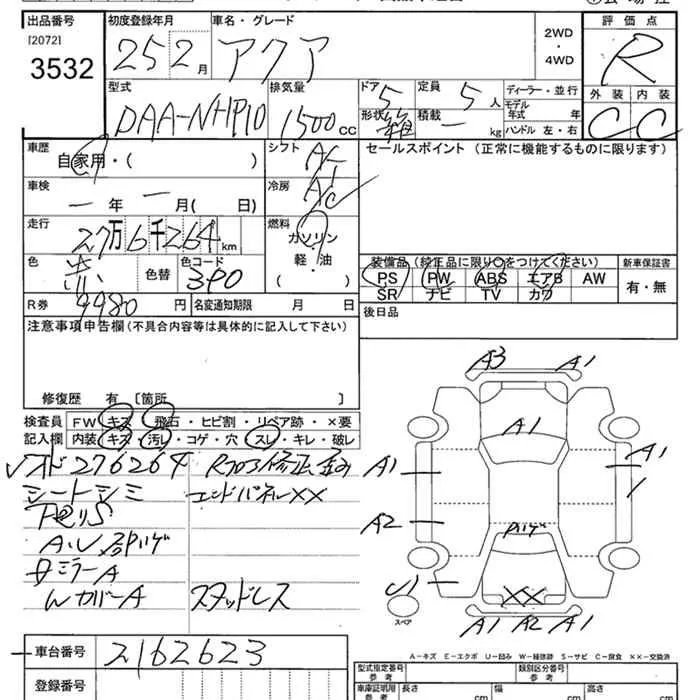 出品番号 初度登録年月 車名・グレード 2WD・4WD 評価点
[2072]
3532 25 2月 アクア R
型式 排気量 ドア 5 定員 5人 ディーラー・並行 外装 内装
DAA-NHP10 1500cc 形状 箱 積載 － kg モデル年式 年 C C
ハンドル 左・右
車歴 シフト AT セールスポイント(正常に機能するものに限ります)
自家用・( )
車検 冷房 AC
－年－月( 日)
走行 燃料
27万6千264km ガソリン
軽・油
( )
色 黒 色替 色コード 3P0
装備品(純正品に限り○をつけてください) 新車保証書
PS PW ABS エアB AW 有・無
SR ナビ TV カワ
R券 9980円 名変通知期限 月 日 後日品
注意事項申告欄(不具合内容等は具体的に記入して下さい)
修復歴 有 [箇所 ]
検査員 FW キズ・飛石・ヒビ割・リペア跡・×要
記入欄 内装・キズ・汚レ・コゲ・穴・スレ・キレ・破レ
276264 Rフロア修正済み
シートシミ エンドパネルXX
下回りS
A・U ハゲ
ミラーA
WカバーA スタッドレス
A3 A1
A1
A1 A1
A2 ハゲ
U1 XX
スペア
A1 A2 A1
A－キズ E－エクボ U－凹み W－補修跡 S－サビ C－腐食 XX－交換済
車台番号 2162623
登録番号
型式指定番号 参考 類別区分番号 参考
車庫証明用 参考 長さ cm 幅 cm 高さ cm